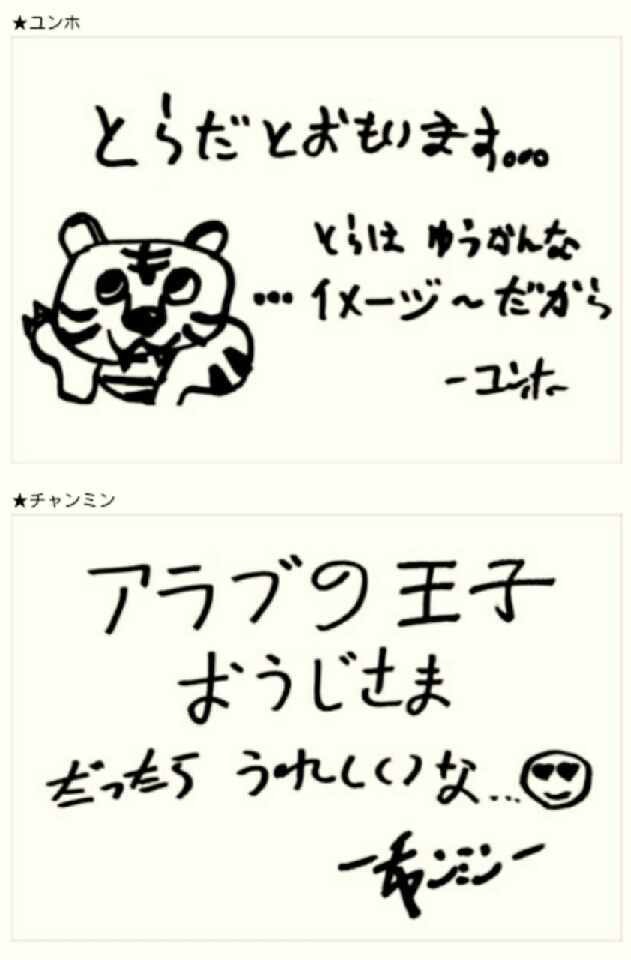 ★ユンホ
とらだとおもいます...
とらは ゆうかんな
...イメージ〜だから
-ユンホ-
★チャンミン
アラブの王子
おうじさま
だったら うれしいな...
-チャンミン-